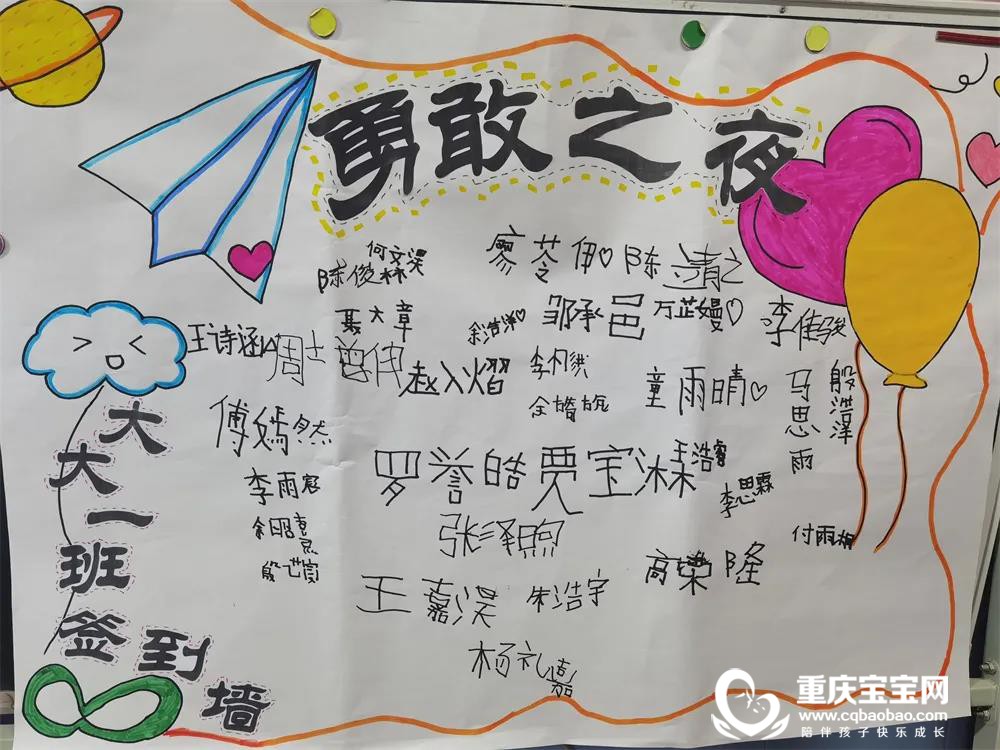 勇敢之夜
何文淏
陈俊霖
廖苓伊♡
陈靖之
聂大章
余浩洋♡
邹承邑
万芷嫚♡
李佳骏
王诗涵
周士曾伊
赵入熠
童雨晴♡
马思雨
殷浩泽
傅嫣然
罗誉皓
贾宝沐
王浩睿
李思霖
李雨宸
余昭熹
张泽煦
付雨桐
高荣隆
王嘉淏
朱浩宇
杨礼嘉
大大一班签到墙
重庆宝宝网
www.cqbaobao.com
陪伴孩子快乐成长